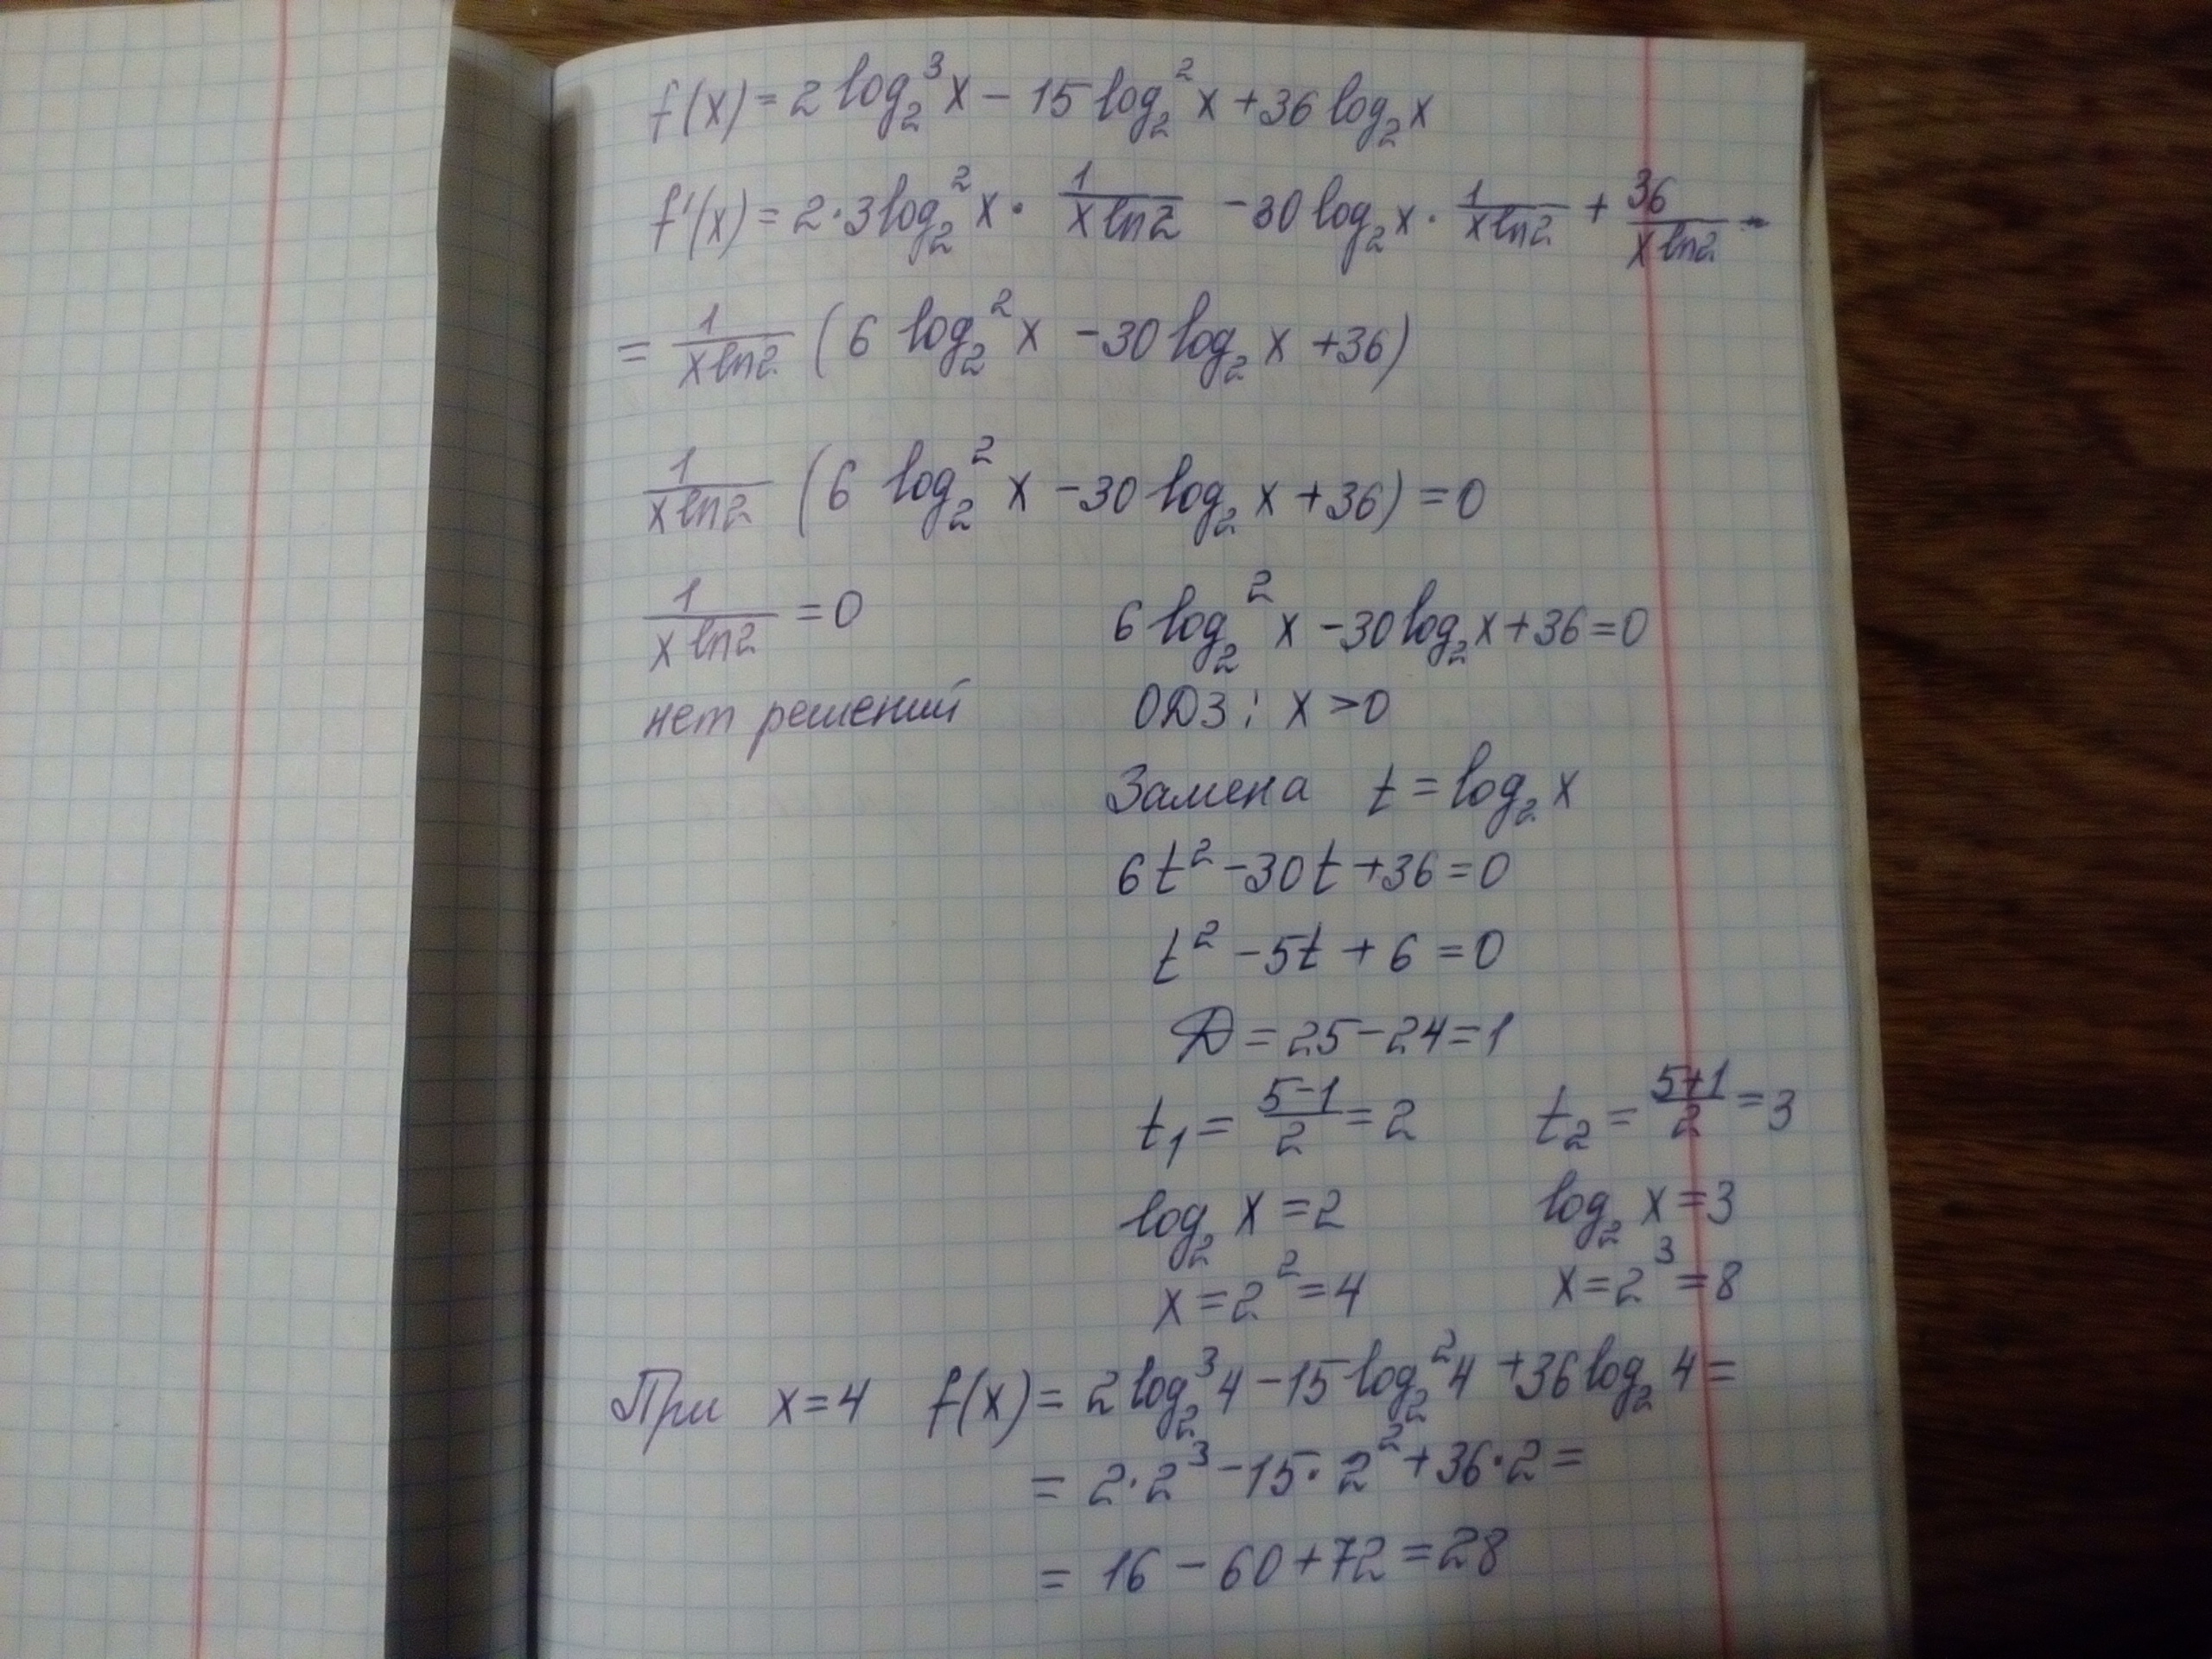 f(x) = 2 log₂³x − 15 log₂²x + 36 log₂x
f'(x) = 2·3log₂²x · 1/(x ln2) − 30 log₂x · 1/(x ln2) + 36/(x ln2) =
= 1/(x ln2) (6 log₂²x − 30 log₂x + 36)
1/(x ln2) (6 log₂²x − 30 log₂x + 36) = 0
1/(x ln2) = 0 6 log₂²x − 30 log₂x + 36 = 0
нет решений ОДЗ: x > 0
Замена t = log₂x
6t² − 30t + 36 = 0
t² − 5t + 6 = 0
D = 25 − 24 = 1
t₁ = (5−1)/2 = 2 t₂ = (5+1)/2 = 3
log₂x = 2 log₂x = 3
x = 2² = 4 x = 2³ = 8
При x = 4 f(x) = 2 log₂³4 − 15 log₂²4 + 36 log₂4 =
= 2·2³ − 15·2² + 36·2 =
= 16 − 60 + 72 = 28